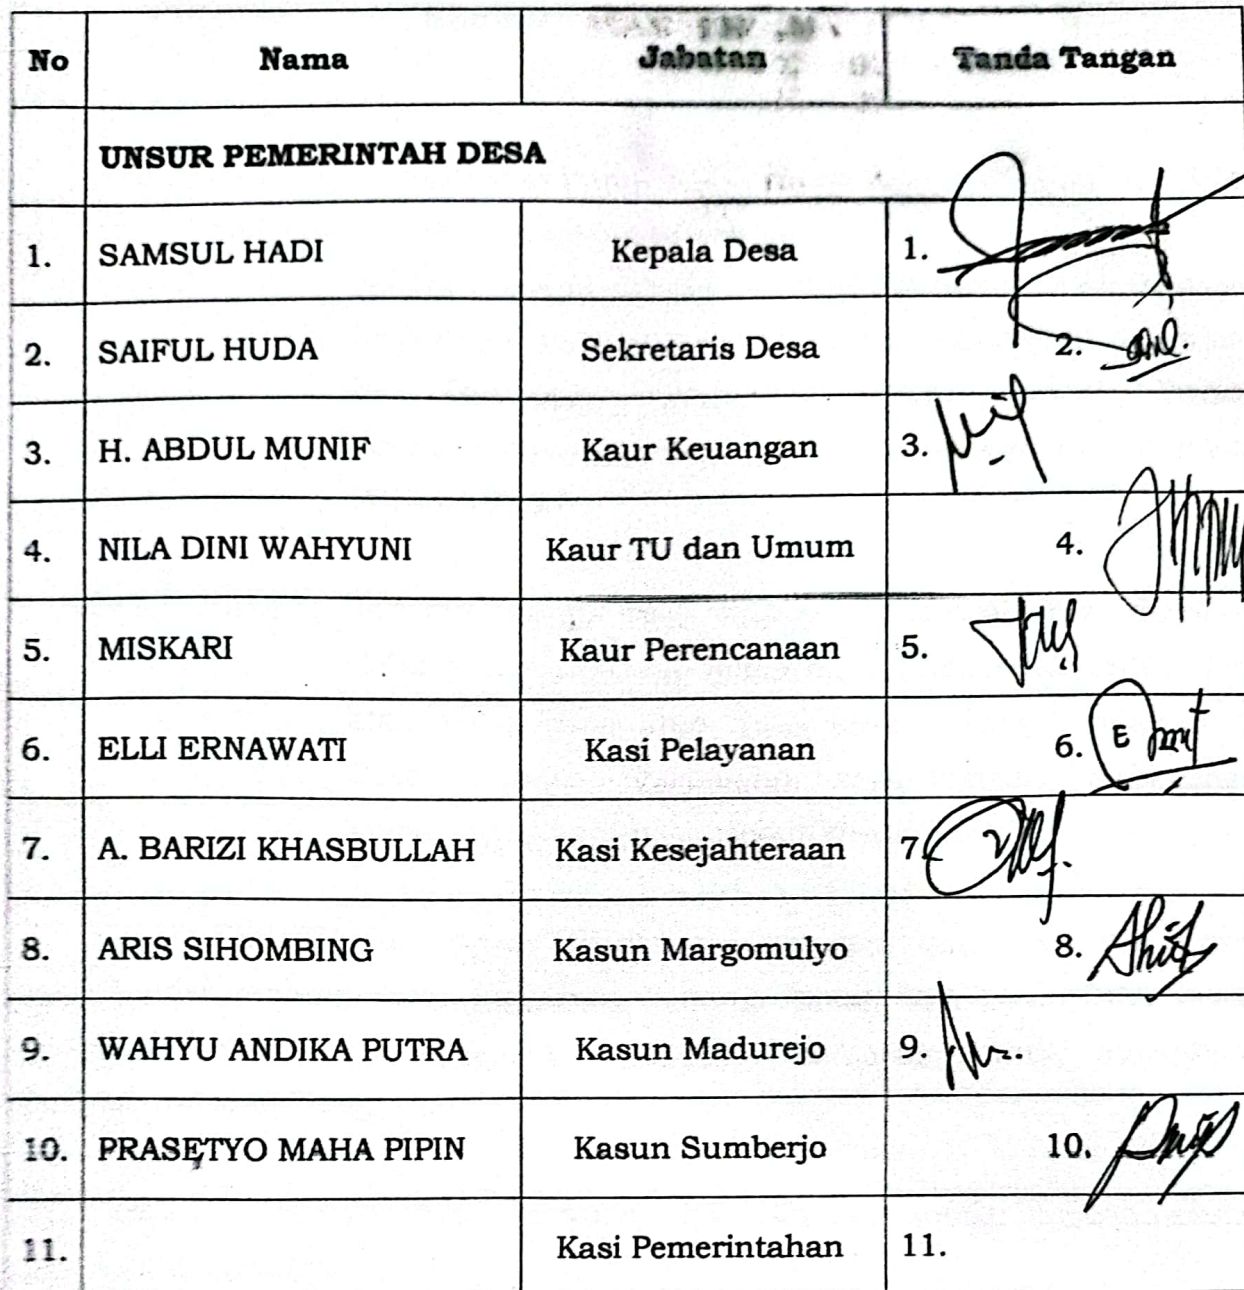 No Nama Jabatan Tanda Tangan
UNSUR PEMERINTAH DESA
1. SAMSUL HADI Kepala Desa 1.
2. SAIFUL HUDA Sekretaris Desa 2.
3. H. ABDUL MUNIF Kaur Keuangan 3.
4. NILA DINI WAHYUNI Kaur TU dan Umum 4.
5. MISKARI Kaur Perencanaan 5.
6. ELLI ERNAWATI Kasi Pelayanan 6.
7. A. BARIZI KHASBULLAH Kasi Kesejahteraan 7.
8. ARIS SIHOMBING Kasun Margomulyo 8.
9. WAHYU ANDIKA PUTRA Kasun Madurejo 9.
10. PRASETYO MAHA PIPIN Kasun Sumberjo 10.
11. Kasi Pemerintahan 11.